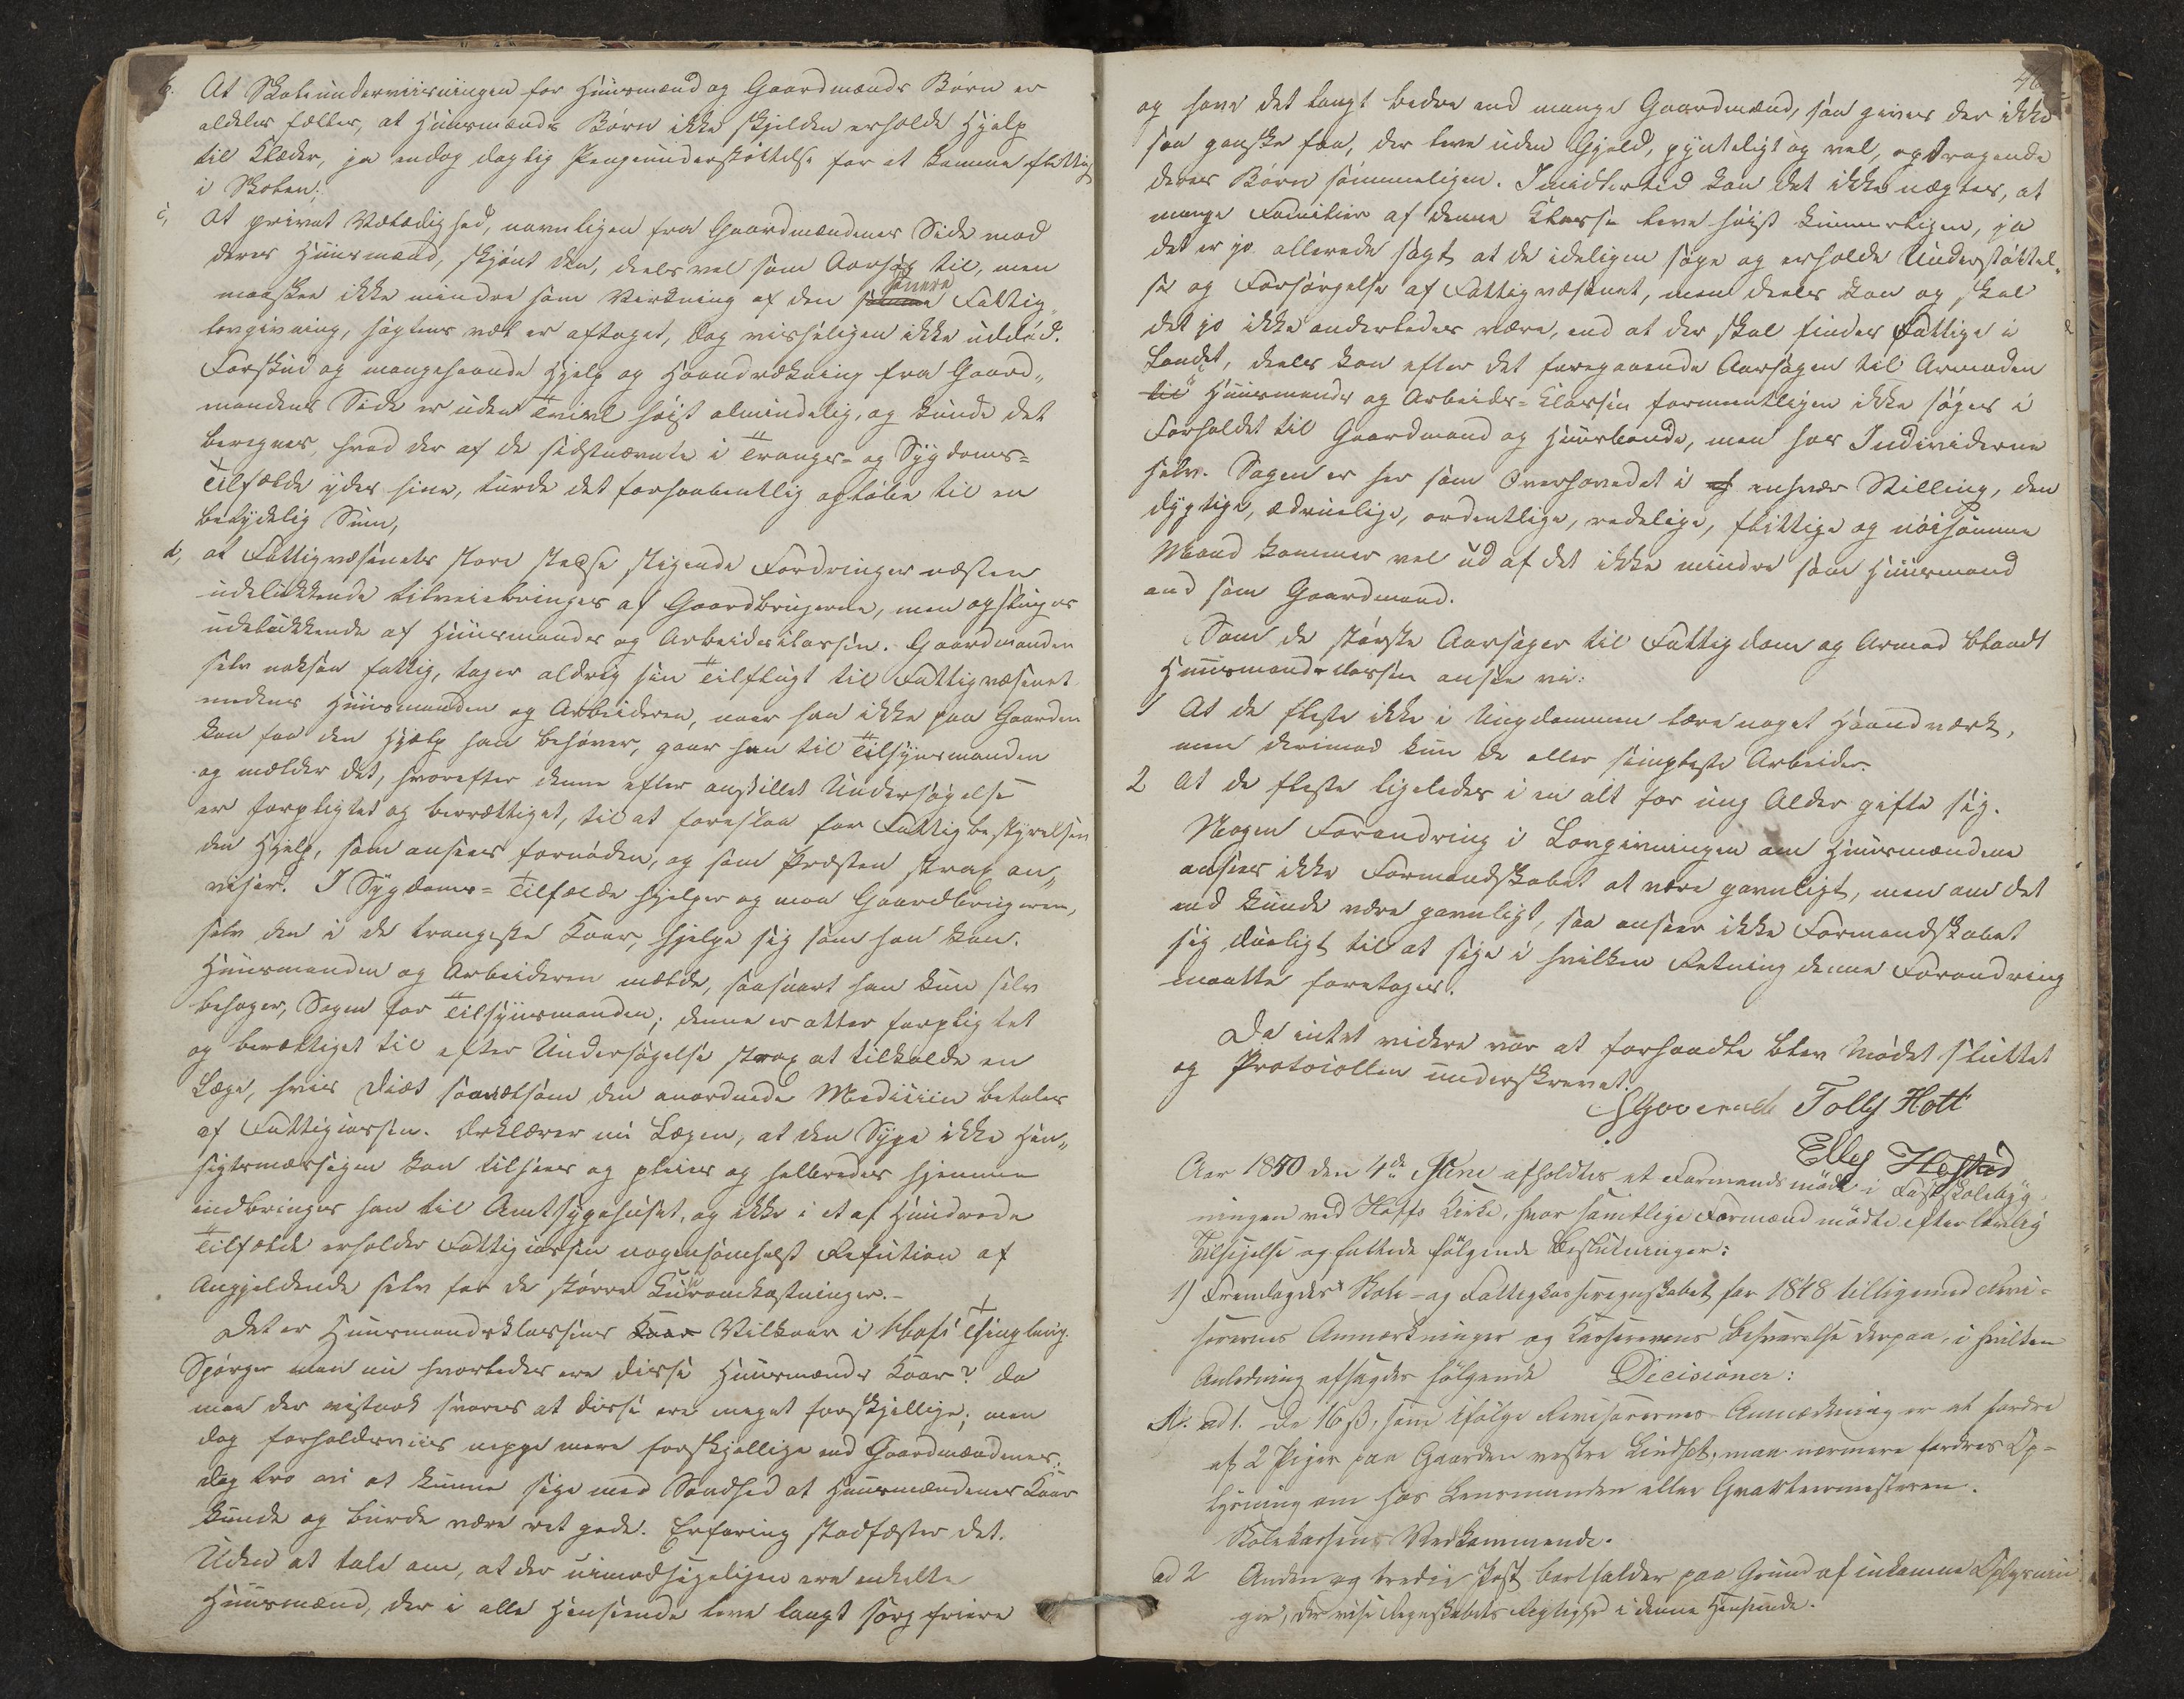 b. At Skoleunderviisningen for Huusmænd og Gaardmænds Børn er
aldeles fælles, at Huusmænds Børn ikke skjelden erholde Hjelp
til Klæder, ja endog daglig Pengeunderstøttelse for at komme flittig
i Skolen;
c, at privat Veldædighed, navnligen fra Gaardmændenes Side mod
deres Huusmænd, skjønt den, deels vel som Aarsag til, men
maaskee ikke mindre som Virkning af den senere Fattig„
lovgivning, sagtens vel er aftaget, dog visseligen ikke uddød.
Forskud og mangehaande Hjelp og Haandrækning fra Gaard„
mandens Side er uden Tvivl høist almindelig, og kunde det
beregnes, hvad der af de sidstnævnte i Trangs- og Sygdoms-
Tilfælde ydes hine, turde det forhaabentlig opløbe til en
betydelig Sum,
d, at Fattigvæsenets store stedse stigende Fordringer næsten
udelukkende tilveiebringes af Gaardbrugerne, men opsluges
udelukkende af Huusmands og Arbeidsclassen. Gaardmanden
selv noksaa fattig, tager aldrig sin Tilflugt til Fattigvæsenet
medens Huusmanden og Arbeideren, naar han ikke paa Gaarden
kan faa den Hjelp han behøver, gaar hen til Tilsynsmanden
og melder det, hvorefter denne efter anstillet Undersøgelse
er forpligtet og berettiget, til at foreslaa for Fattigbestyrelsen
den Hjelp, som ansees fornøden, og som Præsten strax an„
viser. I Sygdoms-Tilfælde hjelper og maa Gaardbrugeren,
selv den i de trangeste Kaar, hjelpe sig som han kan.
Huusmanden og Arbeideren melde, saasnart han kun selv
behager, Sagen for Tilsynsmanden; denne er atter forpligtet
og berettiget til efter Undersøgelse strax at tilkalde en
Læge, hvis Diæt saavelsom den anordnede Medicin betales
af Fattigcassen. Erklærer nu Lægen, at den Syge ikke hen„
sigtsmæssigen kan tilsees og pleies og helbredes hjemme
indbringes han til Amtsygehuset, og ikke i et af Hundrede
Tilfælde erholder Fattigcassen nogensomhelst Refusion af
Angjeldende selv for de større Kuromkostninger.-
Det er Huusmandsklassens Vilkaar i Thinglaug.
Spørger man nu hvorledes ere disse Huusmænds Kaar? da
maa der vistnok svares at disse ere meget forskjellige; men
dog forholdsviis neppe mere forskjellige end Gaardmændenes.
dog tro vi at kunne sige med Sandhed at Huusmændenes Kaar
kunde og burde være ret gode. Erfaring stadfæster det.
Uden at tale om, at der uimodsigeligen ere enkelte
Huusmænd, der i alle Henseende leve langt sorgfriere
46
og have det langt bedre end mange Gaardmænd, saa gives der ikke
saa ganske faa, der leve uden Gjeld, pynteligt og vel, opdragende
deres Børn sømmeligen. Imidlertid kan det ikke nægtes, at
mange Familier af denne Klasse leve høist kummerligen, ja
det er jo allerede sagt at de ideligen søge og erholde Understøttel„
se og Forsørgelse af Fattigvæsenet, men deels kan og skal
det jo ikke anderledes være, end at der skal findes Fattige i
Landet, deels kan efter det foregaaende Aarsagen til Armoden
til Huusmands og Arbeids-Classen formeentligen ikke søges i
Forholdet til Gaardmand og Huusbonde, men hos Individerne
selv. Sagen er her som Overhovedet i enhver Stilling, den
dygtige, ædruelige, ordentlige, redelige, flittige og nøisomme
Mand kommer vel ud af det ikke mindre som Huusmand
end som Gaardmand.
Som de største Aarsager til Fattigdom og Armod blandt
Huusmandsclassen ansee vi:
1 At de fleste ikke i Ungdommen lære noget Haandværk,
men derimod kun de aller simpleste Arbeider.
2 At de fleste ligeledes i en alt for ung Alder gifte sig.
Nogen Forandring i Lovgivningen om Huusmændene
ansees ikke Formandskabet at være gavnligt, men om det
end kunde være gavnligt, saa anseer ikke Formandskabet
sig dueligt til at sige i hvilken Retning denne Forandring
maatte foretages.
Da intet videre var at forhandle blev Mødet sluttet
og Protocollen underskrevet.
Tollef Hott
Ellef Hogstad
Aar 1850 den 4de Juni afholdtes et Formandsmøde i Fastskolebyg-
ningen ved Kirke, hvor samtlige Formænd mødte efter lovlig
Tilsigelse og fattede følgende Beslutninger:
1) Fremlagdes Skole- og Fattigkasseregnskabet for 1848 tilligemed Revi-
sorernes Anmærkninger og Kassererens Besvarelse derpaa, i hvilken
Anledning afsagdes følgende Decisioner:
A. ad 1. De 16 ß, som ifølge Revisorernes Anmærkning er at fordre
af 2 Piger paa Gaarden vestre Lindset, maa nærmere fordres Op-
lysning om hos Lensmanden eller Qvarteermesteren.
Skolekassens Vedkommende.
ad 2 Anden og tredie Post bortfalder paa Grund af indkomne Oplysnin
ger, der vise Regnskabets Rigtighed i denne Henseende.